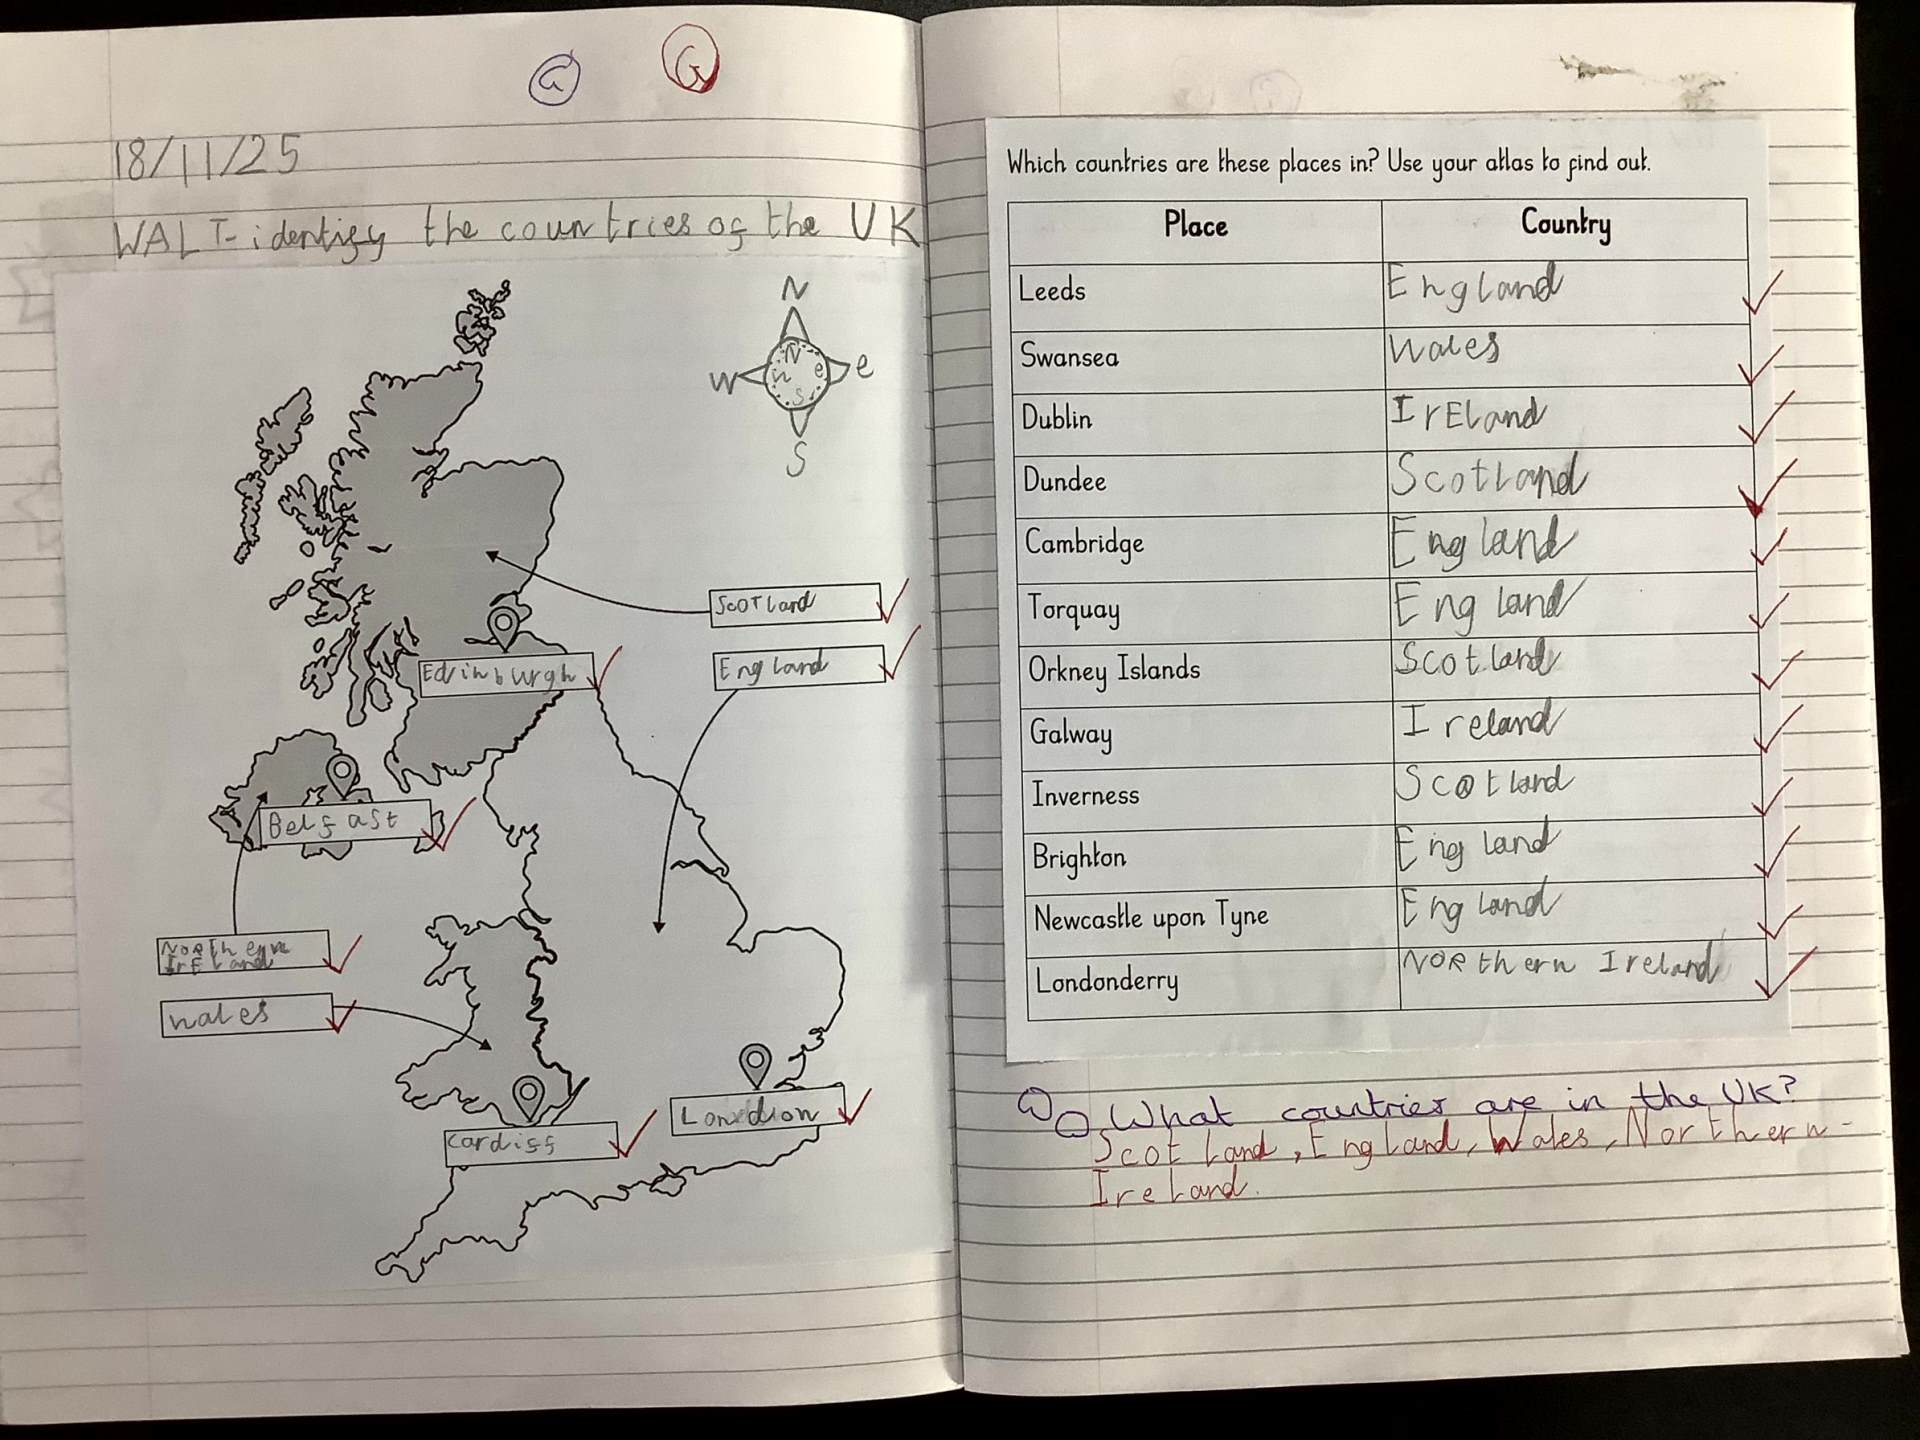 G
G
18/11/25
WALT- identify the countries of the UK
N
W
e
S
N
e
S
Scotland
England
Edinburgh
Belfast
Northern
IrEland
wales
London
Cardiff
Which countries are these places in? Use your atlas to find out.
Place Country
Leeds England
Swansea Wales
Dublin IrEland
Dundee Scotland
Cambridge England
Torquay England
Orkney Islands Scotland
Galway Ireland
Inverness Scotland
Brighton England
Newcastle upon Tyne England
Londonderry NORthern Ireland
What countries are in the UK?
Scotland, England, Wales, Northern-
Ireland.